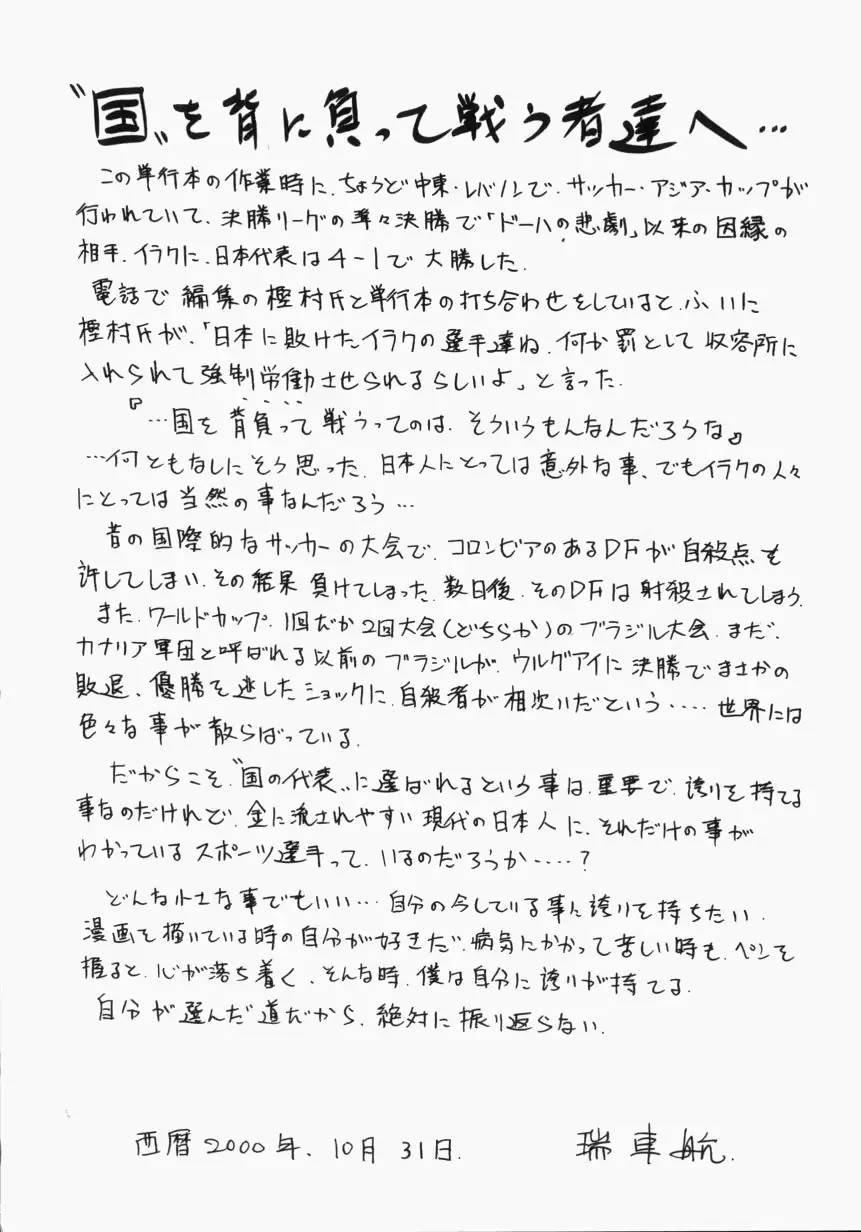 〝国〟を背に負って戦う者達へ…
この単行本の作業時に、ちょうど中東・レバノンで、サッカー・アジア・カップが
行われていて、決勝リーグの準々決勝で「ドーハの悲劇」以来の因縁の
相手、イラクに、日本代表は4-1で大勝した。
電話で編集の樫村氏と単行本の打ち合わせをしていると、ふいに
樫村氏が、「日本に敗けたイラクの選手達ね、何か罰として収容所に
入れられて強制労働させられるらしいよ」と言った。
『…国を背負って戦うってのは、そういうもんなんだろうな』
…何ともなしにそう思った。日本人にとっては意外な事、でもイラクの人々
にとっては当然の事なんだろう…
昔の国際的なサッカーの大会で、コロンビアのあるDFが自殺点を
許してしまい、その結果負けてしまった。数日後、そのDFは射殺されてしまう。
また、ワールドカップ、1回だか2回大会(どちらか)のブラジル大会、まだ、
カナリア軍団と呼ばれる以前のブラジルが、ウルグアイに決勝でまさかの
敗退、優勝を逃したショックに、自殺者が相次いだという……世界には
色々な事が散らばっている。
だからこそ、〝国の代表〟に選ばれるという事は、重要で、誇りを持てる
事なのだけれど、金に流されやすい現代の日本人に、それだけの事が
わかっているスポーツ選手って、いるのだろうか……?
どんな小さな事でもいい…自分の今している事に誇りを持ちたい。
漫画を描いている時の自分が好きだ、病気にかかって苦しい時も、ペンを
握ると、心が落ち着く、そんな時、僕は自分に誇りが持てる。
自分が選んだ道だから、絶対に振り返らない。
西暦2000年、10月31日。
瑞車航.